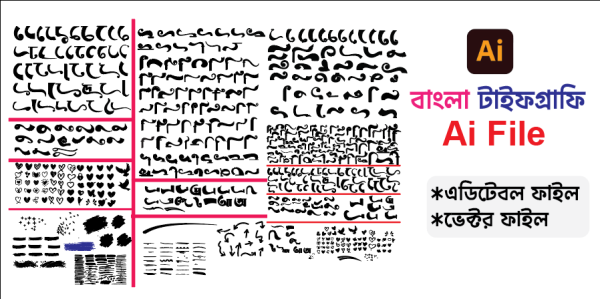 Ai
বাংলা টাইফগ্রাফি
Ai File
*এডিটেবল ফাইল
*ভেক্টর ফাইল